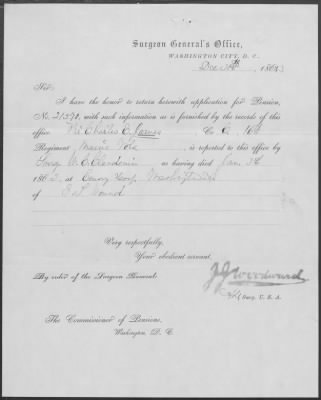 Surgeon General's Office,
WASHINGTON CITY, D. C.
Dec 1863
Sir:
I have the honor to return herewith application for Pension,
No. 21,590, with such information as is furnished by the records of this
office. Charles Co. 16th
Regiment Maine Vols, is reported to this office by
Surg as having died Jan. 3d
1863, at Hosp, Washington
of G. S. Wound
Very respectfully,
Your obedient servant,
By order of the Surgeon General:
J J Woodward
Surg. U. S. A.
The Commissioner of Pensions,
Washington, D. C.